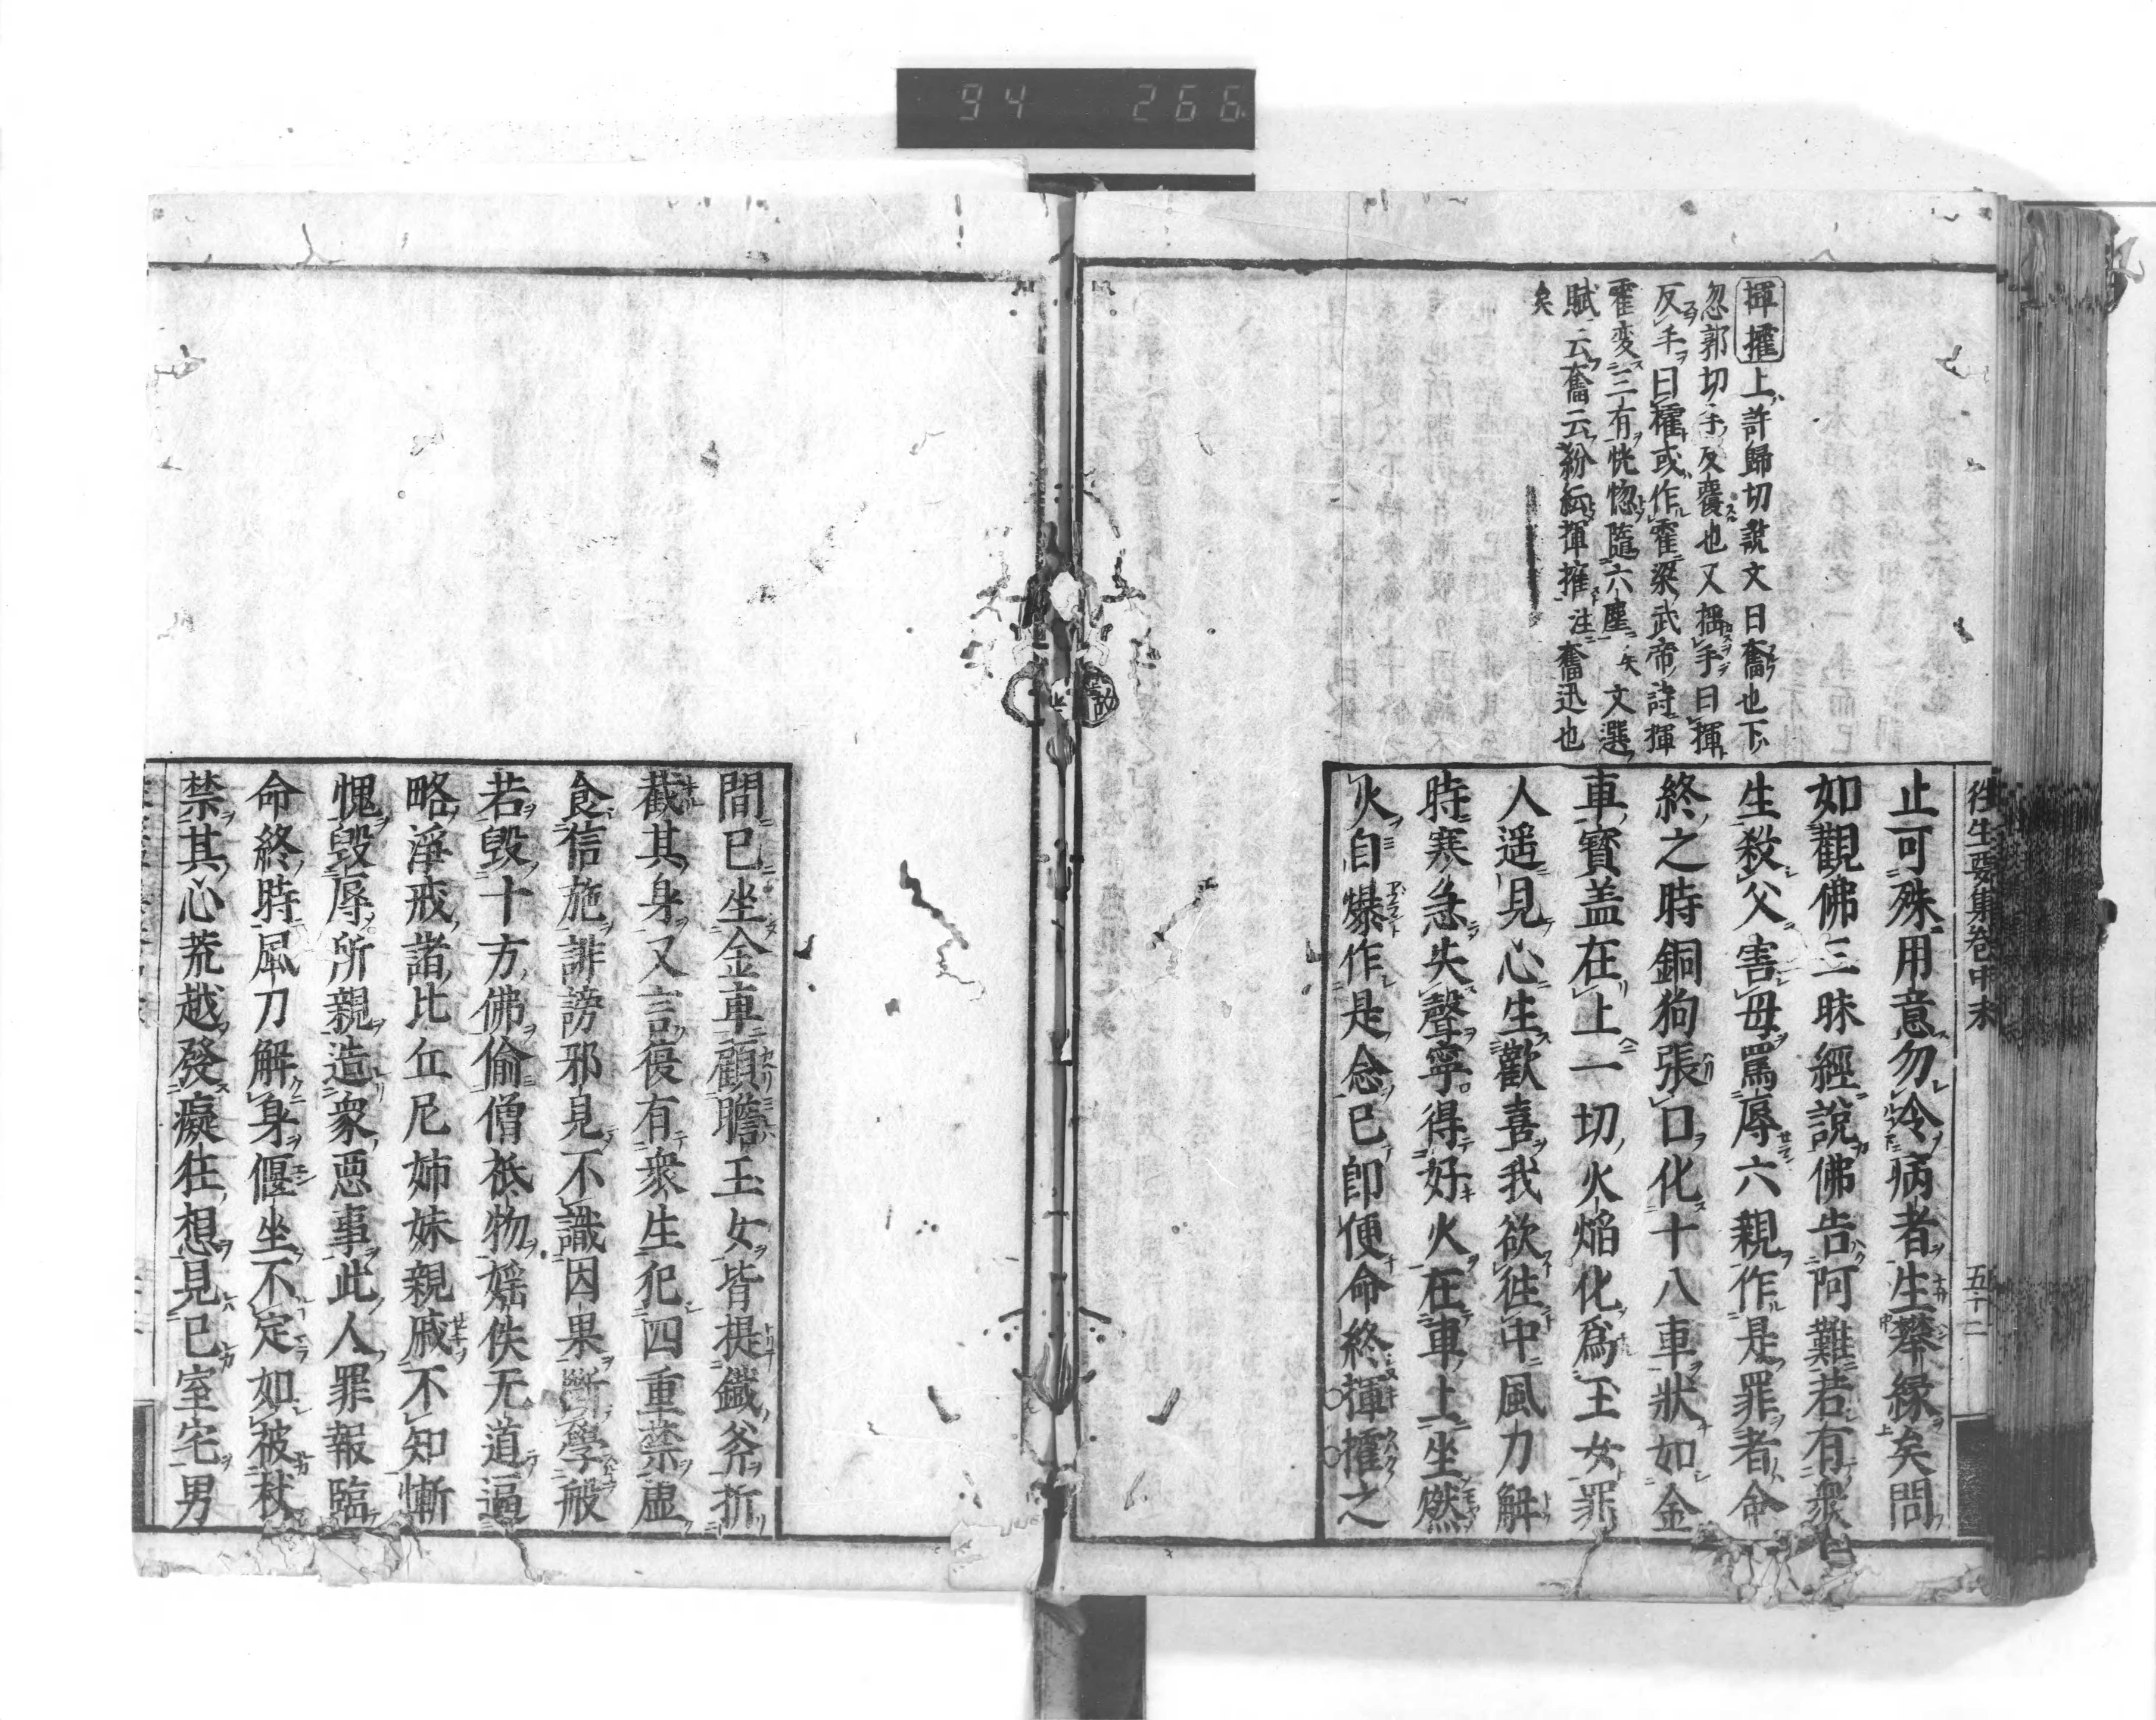 94 266
揮攉上許歸切說文曰奮也下
忽郭切手反覆也又揺手曰揮
反手曰攉或作霍梁武帝詩揮
霍変三有恍惚隨六塵矣文選
賦云奮云紛紜揮攉注奮迅也
矣
徃生要集卷中末 五十二
止可殊用意勿令病者生攀緣矣問
如觀佛三昧經說佛告阿難若有衆
生殺父害母罵辱六親作是罪者命
終之時銅狗張口化十八車狀如金
車寳盖在上一切火焔化爲玉女罪
人遥見心生歡喜我欲徃中風刀解
時寒急失聲寧得好火在車上坐燃
火自爆作是念已即便命終揮攉之
間已坐金車顧瞻玉女皆提鐵斧折
截其身又言復有衆生犯四重禁虚
食信施誹謗邪見不識因果斷學般
若毀十方佛偷僧祇物婬佚无道逼
略淨戒諸比丘尼姉妹親戚不知慚
愧毀辱所親造衆惡事此人罪報臨
命終時風刀解身偃坐不定如被杖
禁其心荒越發癡徃想見已室宅男